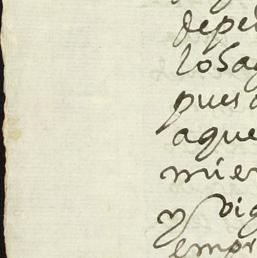 depe
losa
pues
aque
mier
y vig
empr